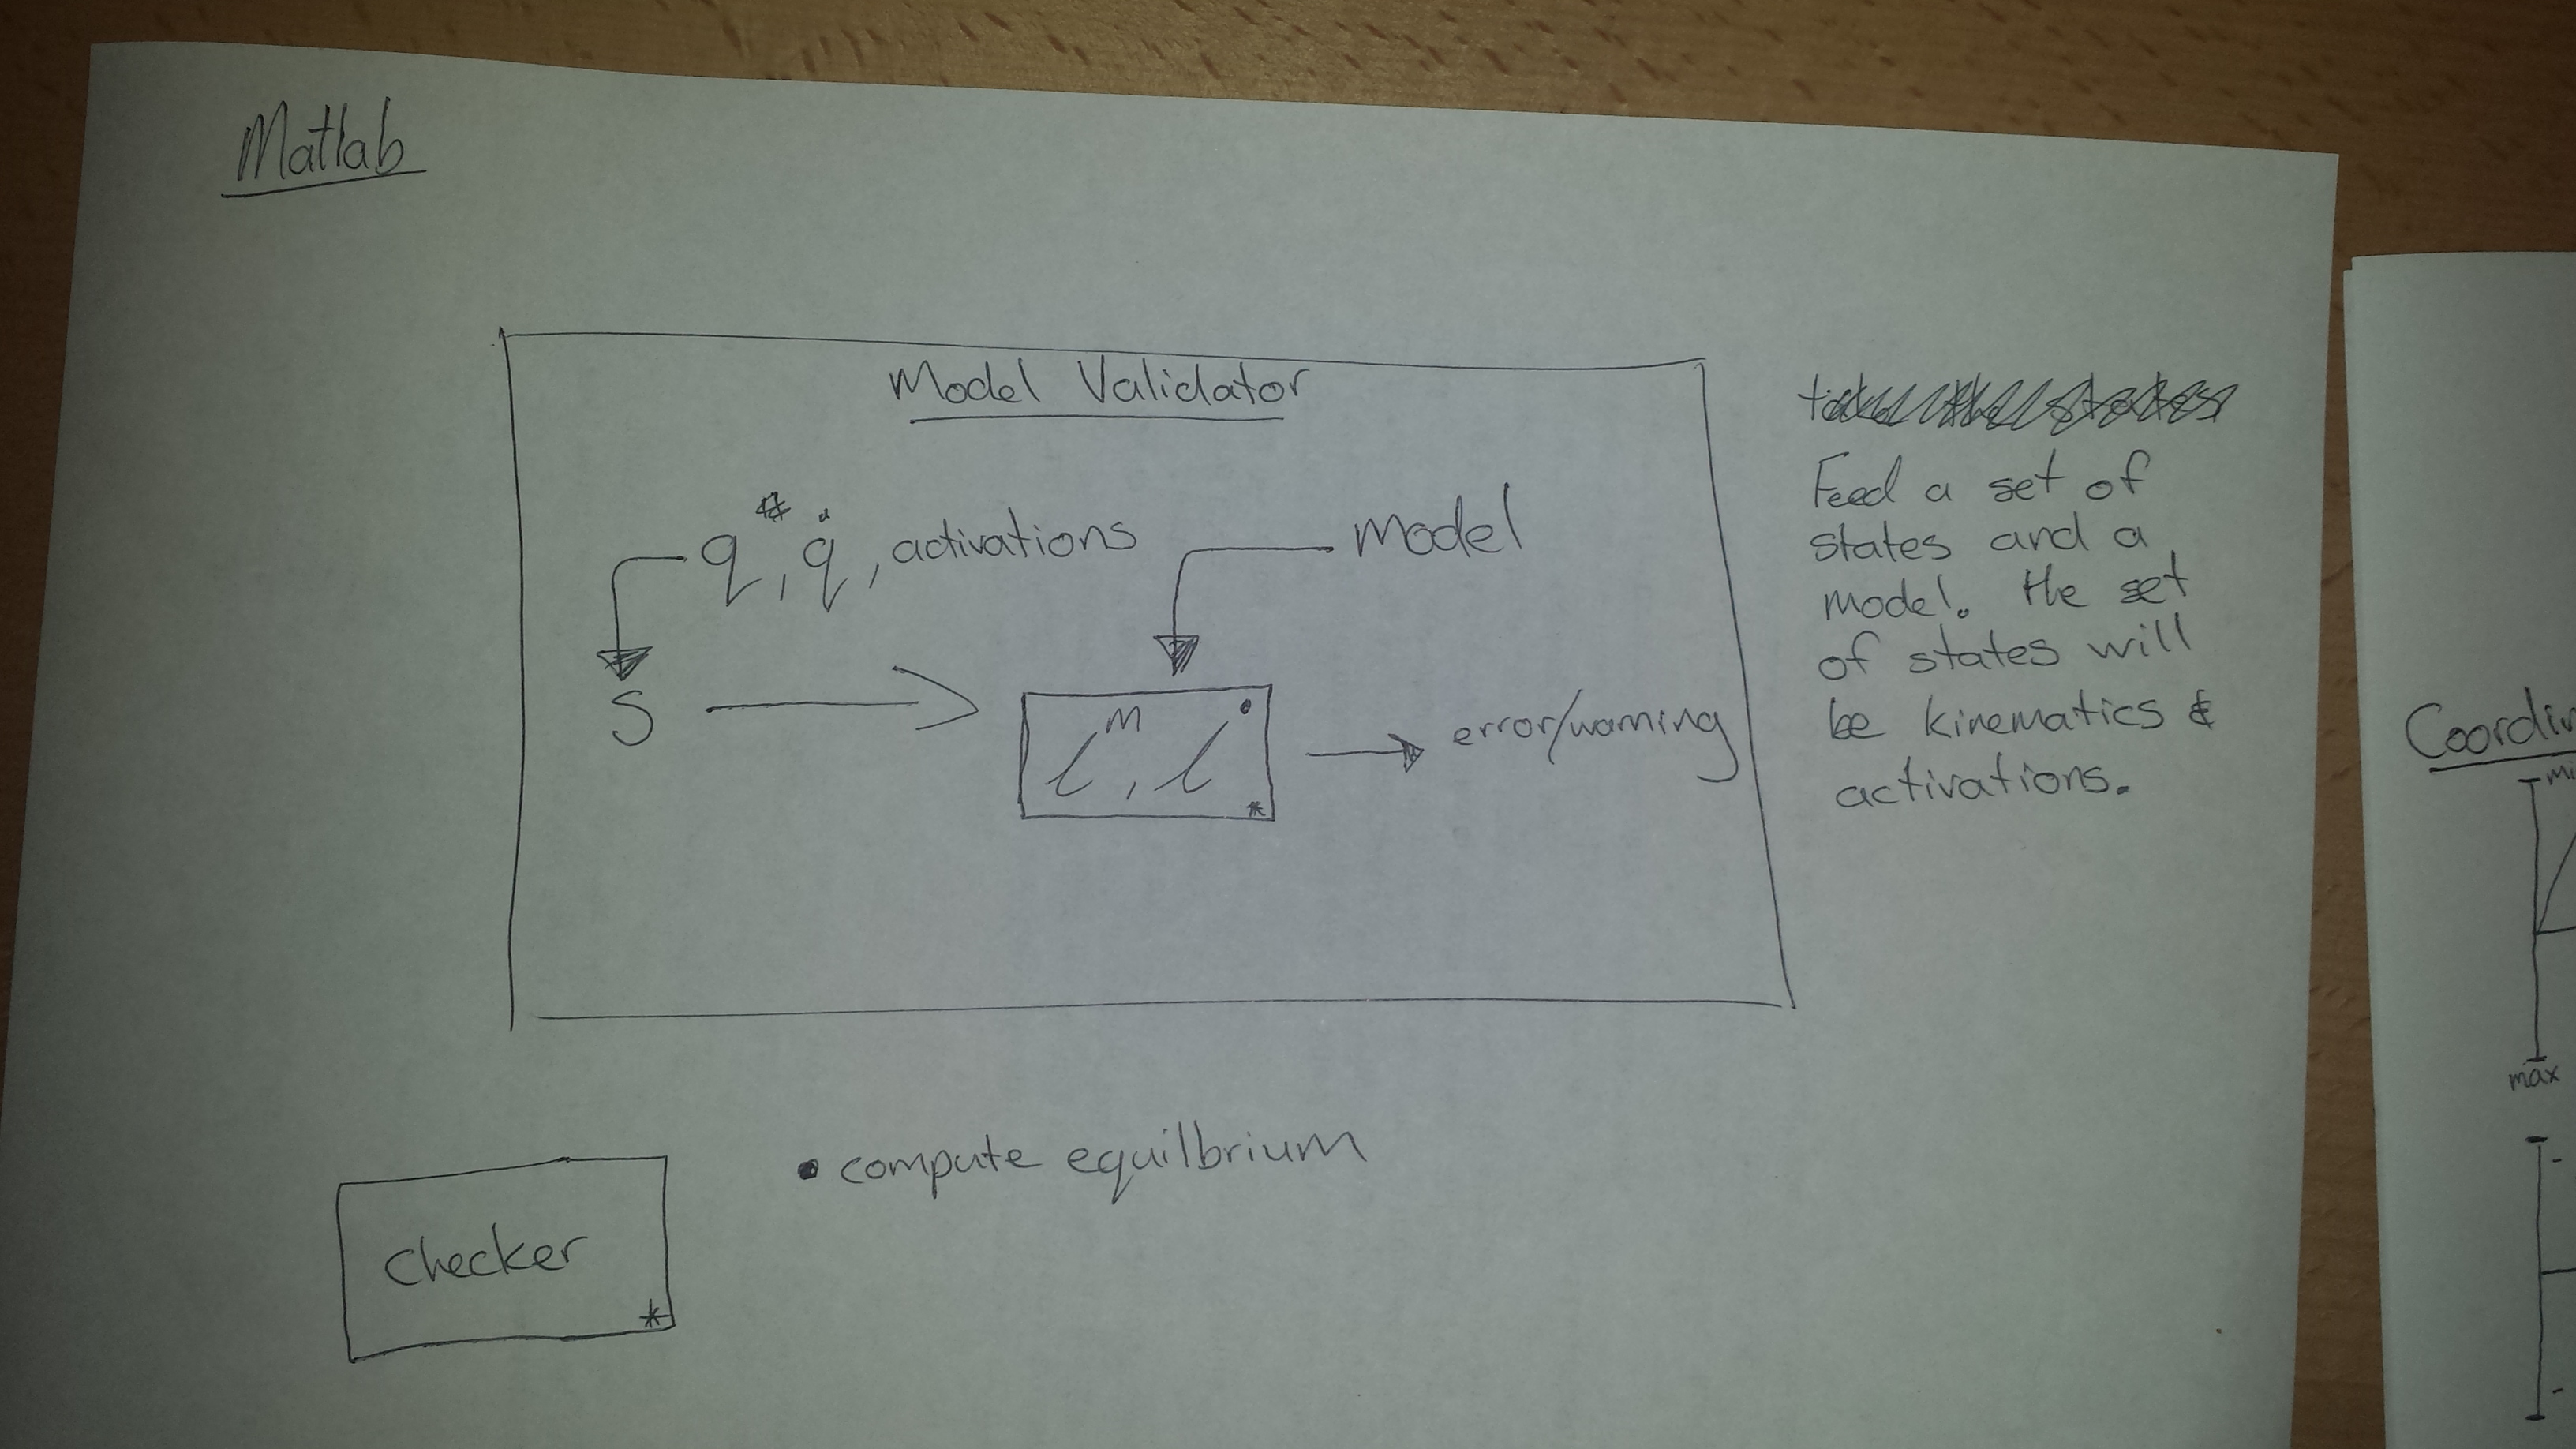 Matlab
Model Validator
q*, q̇, activations
model
S
lᵐ, l̇
*
error/warning
Feed a set of
states and a
model. the set
of states will
be kinematics &
activations.
• compute equilbrium
checker
*
Coordin
mi
max